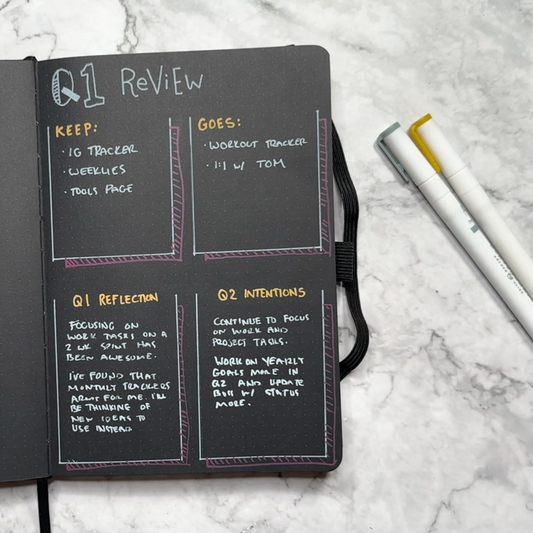 Q1 REVIEW
KEEP:
· IG TRACKER
· WEEKLIES
· TOOLS PAGE
GOES:
· WORKOUT TRACKER
· 1:1 W/ TOM
Q1 REFLECTION
FOCUSING ON
WORK TASKS ON A
2 WK SPINT HAS
BEEN AWESOME.
I'VE FOUND THAT
MONTHLY TRACKERS
ARENT FOR ME. I'LL
BE THINKING OF
NEW IDEAS TO
USE INSTEAD
Q2 INTENTIONS
CONTINUE TO FOCUS
ON WORK AND
PROJECT TASKS.
WORK ON YEARLY
GOALS MORE IN
Q2 AND UPDATE
W/ STATUS
MORE.